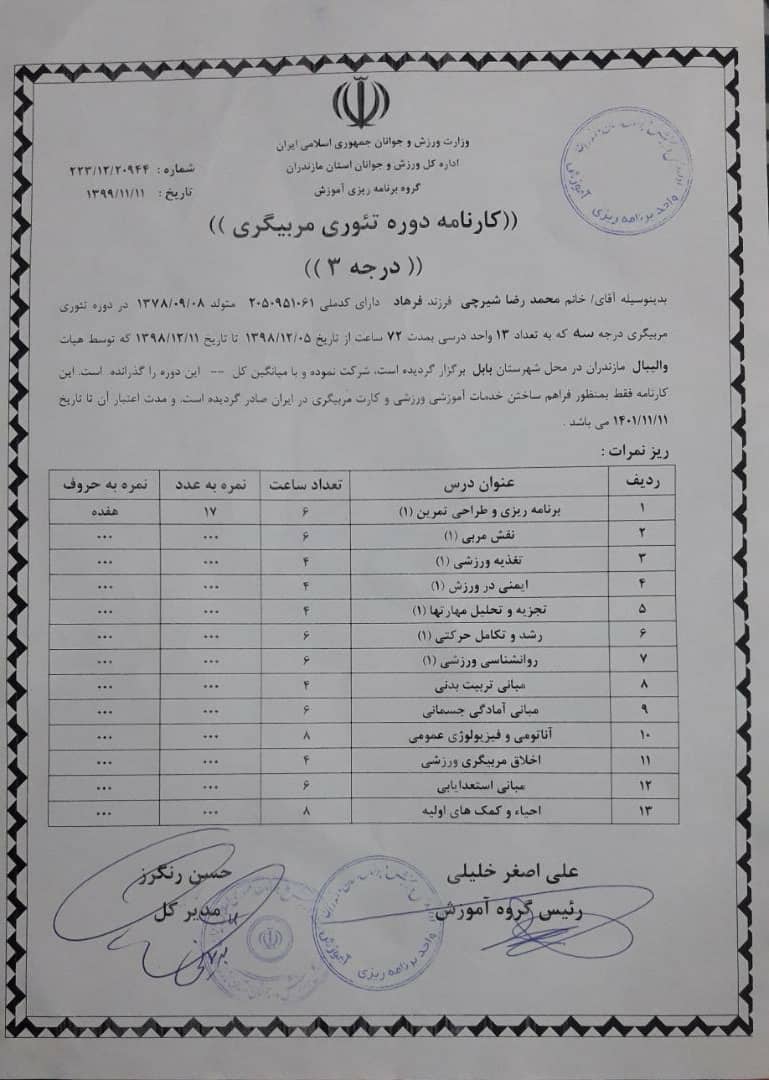 وزارت ورزش و جوانان جمهوری اسلامی ایران
اداره کل ورزش و جوانان استان مازندران
گروه برنامه ریزی آموزش
شماره : ۲۲۳/۱۲/۲۰۹۴۴
تاریخ : ۱۳۹۹/۱۱/۱۱
واحد برنامه ریزی آموزش
((کارنامه دوره تئوری مربیگری ))
(( درجه ۳ ))
بدینوسیله آقای/ خانم محمد رضا شیرچی فرزند فرهاد دارای کدملی ۲۰۵۰۹۵۱۰۶۱ متولد ۱۳۷۸/۰۹/۰۸ در دوره تئوری
مربیگری درجه سه که به تعداد ۱۳ واحد درسی بمدت ۷۲ ساعت از تاریخ ۱۳۹۸/۱۲/۰۵ تا تاریخ ۱۳۹۸/۱۲/۱۱ که توسط هیات
والیبال مازندران در محل شهرستان بابل برگزار گردیده است، شرکت نموده و با میانگین کل -- این دوره را گذرانده است. این
کارنامه فقط بمنظور فراهم ساختن خدمات آموزشی ورزشی و کارت مربیگری در ایران صادر گردیده است. و مدت اعتبار آن تا تاریخ
۱۴۰۱/۱۱/۱۱ می باشد .
ریز نمرات :
ردیف عنوان درس تعداد ساعت نمره به عدد نمره به حروف
۱ برنامه ریزی و طراحی تمرین (۱) ۶ ۱۷ هفده
۲ نقش مربی (۱) ۶ ... ...
۳ تغذیه ورزشی (۱) ۴ ... ...
۴ ایمنی در ورزش (۱) ۴ ... ...
۵ تجزیه و تحلیل مهارتها (۱) ۴ ... ...
۶ رشد و تکامل حرکتی (۱) ۶ ... ...
۷ روانشناسی ورزشی (۱) ۶ ... ...
۸ مبانی تربیت بدنی ۴ ... ...
۹ مبانی آمادگی جسمانی ۶ ... ...
۱۰ آناتومی و فیزیولوژی عمومی ۸ ... ...
۱۱ اخلاق مربیگری ورزشی ۴ ... ...
۱۲ مبانی استعدایابی ۶ ... ...
۱۳ احیاء و کمک های اولیه ۸ ... ...
علی اصغر خلیلی
رئیس گروه آموزش
حسن رنگرز
مدیر کل
واحد برنامه ریزی آموزش